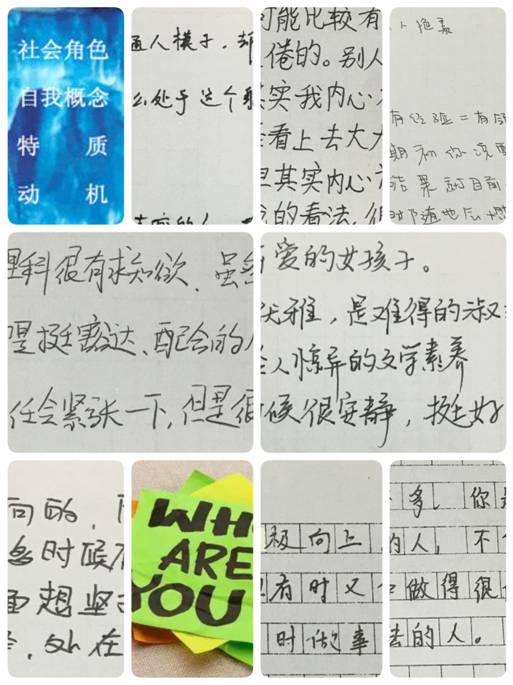 社会角色
自我概念
特 质
动 机
人模子,
么处于这个
可能比较有
倦的。别人
其实我内心
看上去大大
其实内心
的看法,很
人 绝美
有经验=有
期初你说
结果到目前
理科很有求知欲,虽
挺豁达、配合的人
任会紧张一下,但是很
爱的女孩子。
优雅,是难得的淑
人惊异的文学素养
时候很安静,挺好
向的,
多时候
面想坚
,处在
WHO
ARE
YOU
积极向上
有时又
时做事
多,你
的人,不
做得很
去的人。